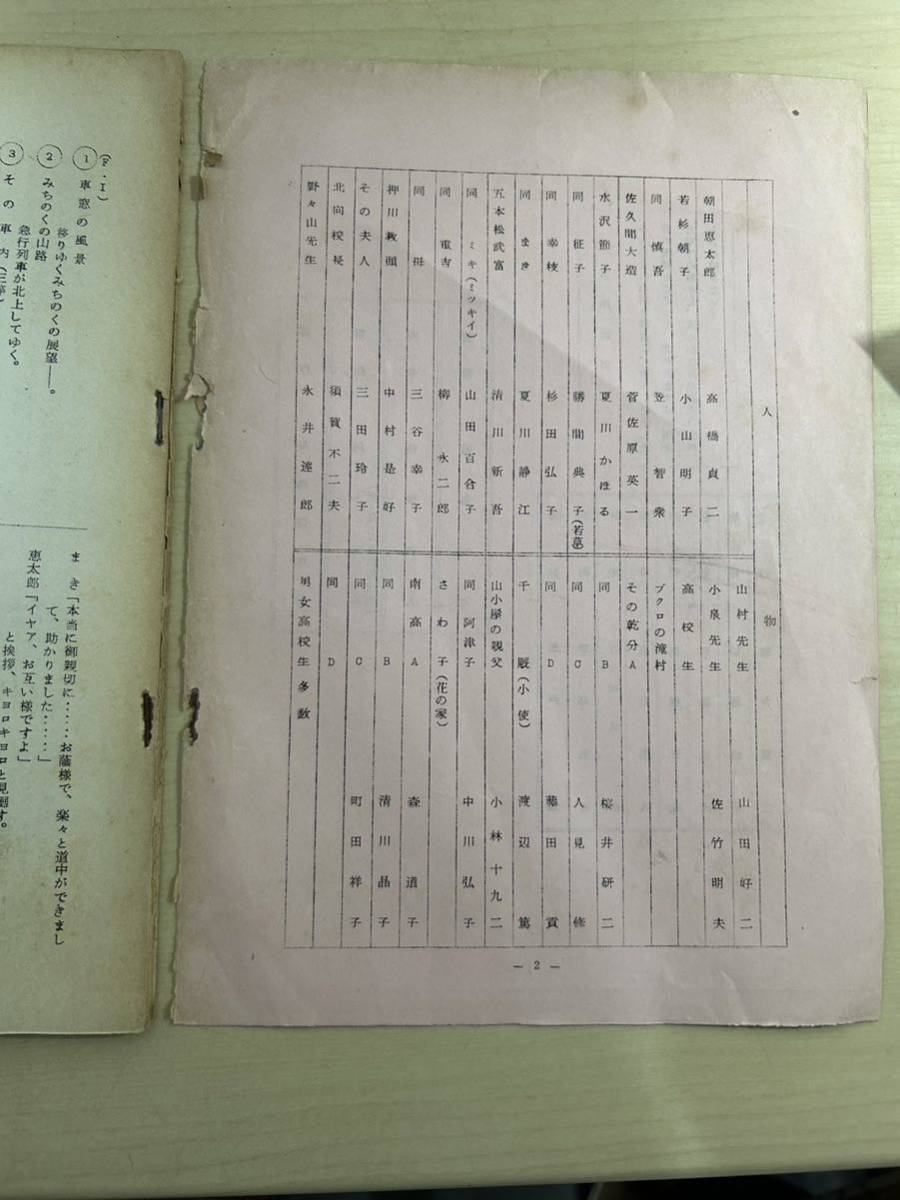 人物
朝田恵太郎 高橋貞二
若杉朝子 小山明子
同 慎吾 笠智衆
佐久間大造 菅佐原英一
水沢節子 夏川かほる
同 征子 勝間典子(若葉)
同 幸枝 杉田弘子
同 まき 夏川静江
五本松武富 清川新吾
同 ミキ(ミッキイ) 山田百合子
同 重吉 柳永二郎
同 母 三谷幸子
押川教頭 中村是好
その夫人 三田玲子
北向校長 須賀不二夫
野々山先生 永井達郎
山村先生 山田好二
小泉先生 佐竹明夫
高校生
ブクロの滝村
その乾分A
同 B 桜井研二
同 C 人見修
同 D 藤田貢
千厩(小使) 渡辺篤
山小屋の親父 小林十九二
同 阿津子 中川弘子
さわ子(花の家)
南高A 森道子
同 B 清川晶子
同 C 町田祥子
同 D
男女高校生多数
— 2 —
(F・I)
① 車窓の風景
移りゆくみちのくの展望——。
② みちのくの山路
急行列車が北上してゆく。
③ その車内(三等)
まき「本当に御親切に‥‥‥お蔭様で、楽々と道中ができまし
て、助かりました‥‥‥」
恵太郎「イヤア、お互い様ですよ」
と挨拶、キョロキョロと見廻す。